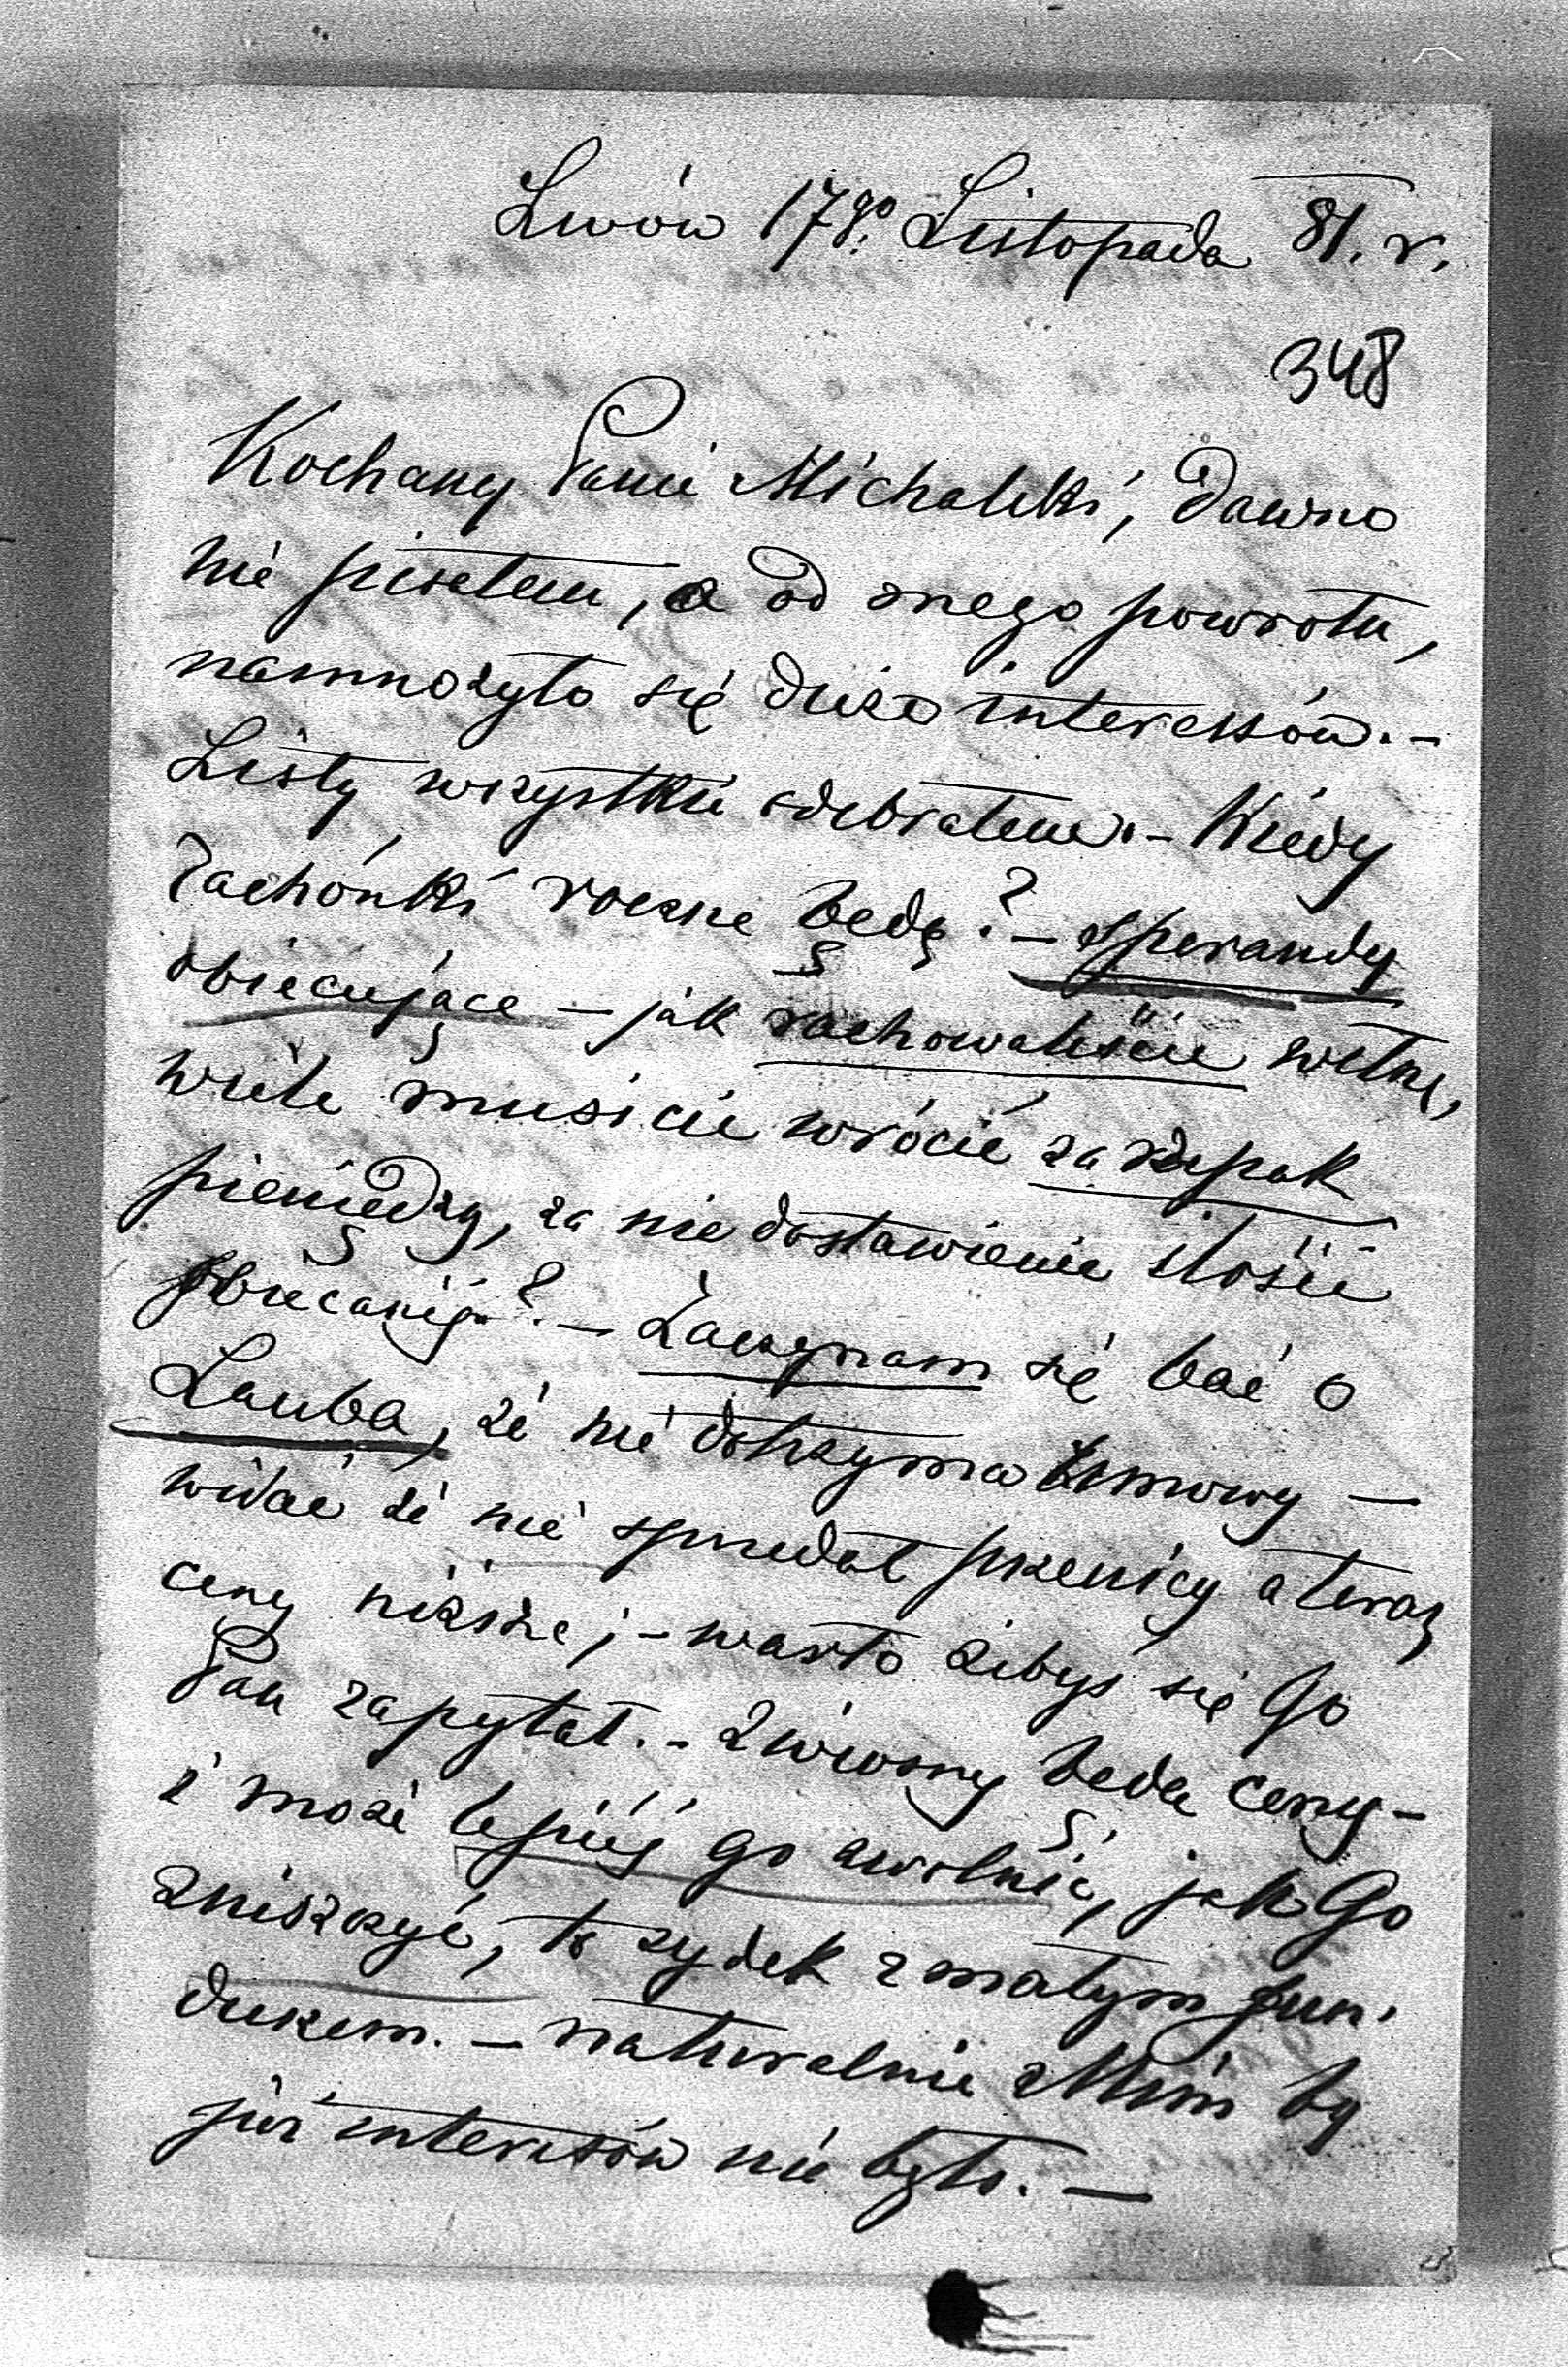 Lwów 17go Listopada 81. r.
348
Kochany Panie Michalski, dawno
nie pisałem, a od mego powrotu,
namnożyło się dużo interessów. –
Listy wszystkie odebrałem. – Kiedy
rachónki roczne będą? – sperandy
obiecujące – jak rachowaliście wełnę,
wiele musicie wrócić za rzepak
pieniędzy, za nie dostawienie ilości
obiecanéj? – Zaczynam się bać o
Lauba, że nie dotrzyma umowy –
widać że nie sprzedał pszenicy a teraz
ceny niższe; – warto żebyś się go
Pan zapytał. – Z wiosny będą ceny –
i może lepiéj go uwolnić, jak Go
zniszczyć, to żydek z małym fun-
duszem. – naturalnie z Nim by
już interesów nie było. –